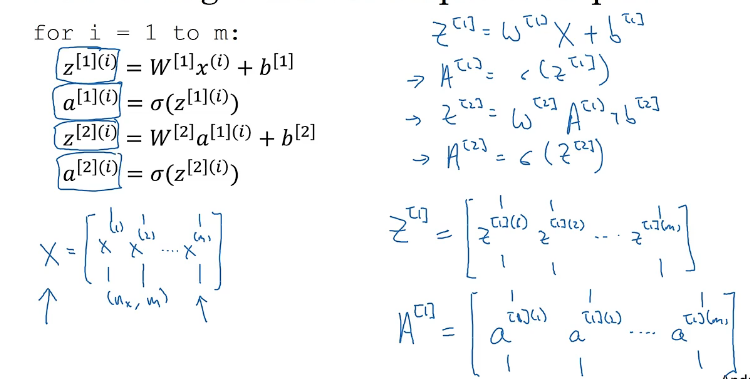 for i = 1 to m:
z[1](i) = W[1]x(i) + b[1]
a[1](i) = σ(z[1](i))
z[2](i) = W[2]a[1](i) + b[2]
a[2](i) = σ(z[2](i))
X = [x(1) x(2) .... x(m)]
(nx, m)
Z[1] = W[1] X + b[1]
→ A[1] = σ(Z[1])
→ Z[2] = W[2] A[1] + b[2]
→ A[2] = σ(Z[2])
Z[1] = [z[1](1) z[1](2) ... z[1](m)]
A[1] = [a[1](1) a[1](2) .... a[1](m)]